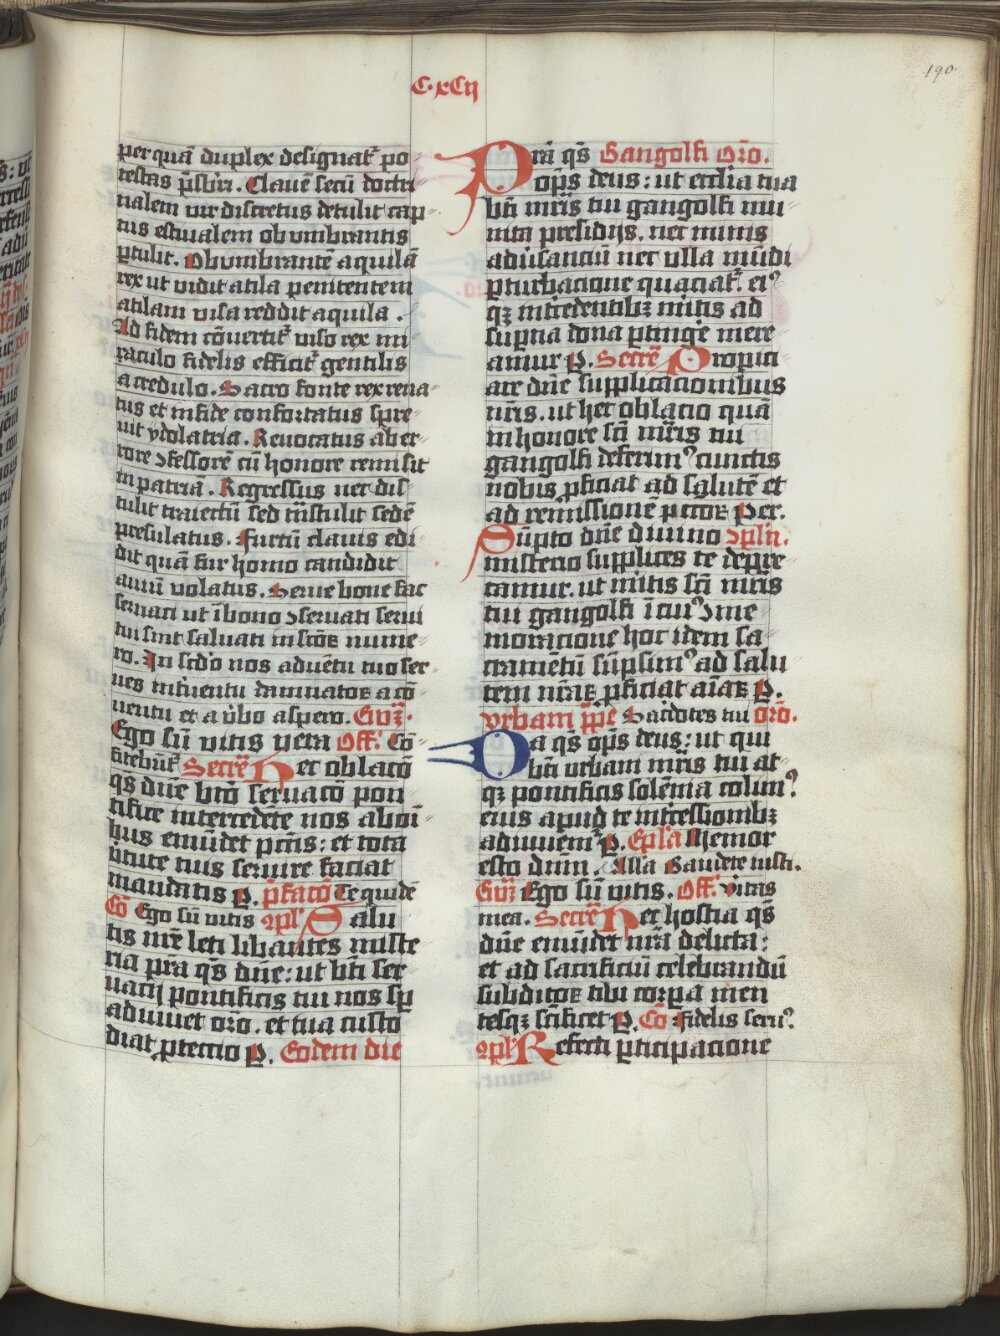 C·xCij
190
per quā duplex designat᷑ po
testas p̄sbiri. Clauē secū doctri
nalem vir discretus detulit cap
tus estiualem ob vmbrantis
ꝑtulit. Obvmbrantē aquilā
rex ut vidit atila penitentem
atilam visa reddit aquila.
Ad fidem cōuertit᷑ viso rex mi
raculo fidelis efficit᷑ gentilis
a credulo. Sacro fonte rex rena
tus et in fide confortatus spre
uit ydolatria. Reuocatus ab er
rore ꝯfessorē cū honore remisit
in patriā. Regressus nec dis
tulit traiectū sed trāstulit sedē
presulatus. Furtū clauis edi
dit quā fur homo candidit
auiū volatus. Serue bone fac
seruari ut ī bono ꝯseruati serui
tui sint saluati in sctōꝝ nume
ro. In scd̓o nos aduētu tuo ser
ues
uentu et a v̓bo aspero. Ew̄ꝫ.
Ego sū vitis vera Off̓. Cō
fitebūt᷑ Secrē Hec oblacō
qs̄ dn̄e bt̄i seruacō pon
tifice intercedēte nos ab oī
bus emūdet pctīs: et tota
v̓tute tuis seruire faciat
mandatis P. p̄facō Te quidē
Cō Ego sū vitis ꝯpl̓ Salu
tis nr̄e leti libantes miste
ria p̄ra qs̄ dn̄e: ut bt̄i ser
uacij pontificis tui nos sp̄
adiuuet or̄o. et tua custo
diat ꝓtectio P. Eodem die
P̄ra qs̄ Gangolfi Or̄o.
op̄s deus: ut ecclia tua
bt̄i mr̄is tui gangolfi mu
nita presidijs. nec inimis
aduersanciū nec vlla mūdi
ꝑturbacione quaciat᷑. eiꝰ
qꝫ intercedentibꝫ mitis ad
sup̄na dona ꝑtinge mere
amur P. Secrē Propici
are dn̄e supplicacionibus
nr̄is. ut hec oblacio quā
in honore sc̄i mr̄is tui
gangolfi deferimꝰ cunctis
nobis ꝓficiat ad salutē et
ad remissionē pctōꝝ Per.
Sūpto dn̄e diuino ꝯpl̄n.
misterio supplices te depre
camur. ut mitis sc̄i mr̄is
tui gangolfi ī cuiꝰ ꝯme
moracione hoc idem sa
cramētū sūpsimꝰ ad salu
tem nr̄aꝝ ꝓficiat aīaꝝ P.
Vrbani pp̄e Sacerdotes tui or̄o.
Da qs̄ op̄s deus: ut qui
bt̄i vrbani mr̄is tui at
qꝫ pontificis solēnia colimꝰ.
eius apud te intcessionibꝫ
adiuuem᷑ P. Epl̄a Memor
esto dūm Alla Gaudete iusti.
Ew̄ꝫ Ego sū vitis. Off̓. Veritas
mea. Secrē Hec hostia qs̄
dn̄e emūdet nr̄a delicta:
et ad sacrificiū celebrandū
subditoꝝ tibi corpa men
tesqꝫ sc̄ificet P. Cō Fidelis seruꝰ.
ꝯpl̓ Refecti ꝑticipacione